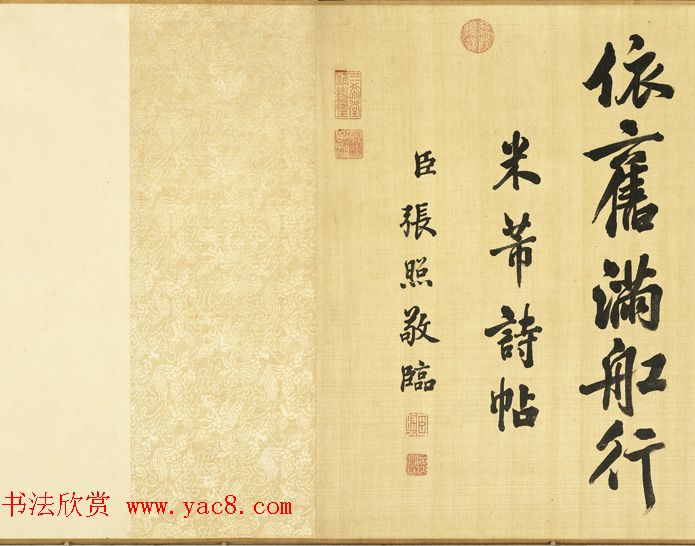 依舊滿舡行
米芾詩帖
臣張照敬臨
书法欣赏 www.yac8.com